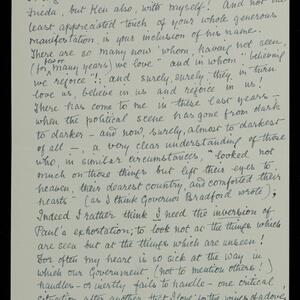 Frieda, but Ken also, with myself! And not the
least appreciated touch of your whole generous
manifestation, is your inclusion of his name.
There are so many now "whom, having not seen,
(for many years) we love" and in whom "believing
we rejoice"!; and surely, surely, they, in turn
love us, believe in us and rejoice in us!
There has come to me in these last years –
when the political scene has gone from dark
to darker – and now, surely, almost to darkest
of all –, a very clear understanding of those
who, in similar circumstances, "looked not
much on those things but left their eyes to
heaven, their dearest country, and comforted their
hearts" (as I think Governor Bradford wrote);
Indeed I rather think I need the inversion of
Paul's exhortation; to look not at the things which
are seen but at the things which are unseen!
For often my heart is so sick at the way in
which our Government (not to mention others!)
handles – or inertly, fails to handle – one critical
situation after another that I